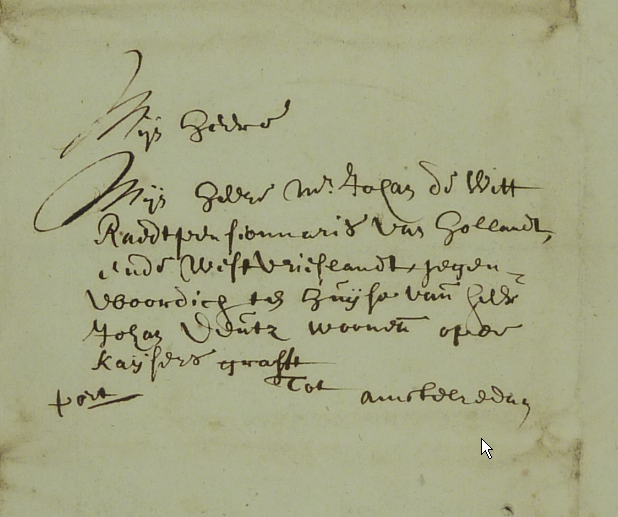 Mijn Heere
Mijn Heere Mr. Johan de Witt
Raedtpensionnaris van Hollandt,
ende Westvrieslandt, jegen-
woordich ten huijse van heer
Johan Deutz woonen op de
Kaijsers graft
Tot
port Amsteredam